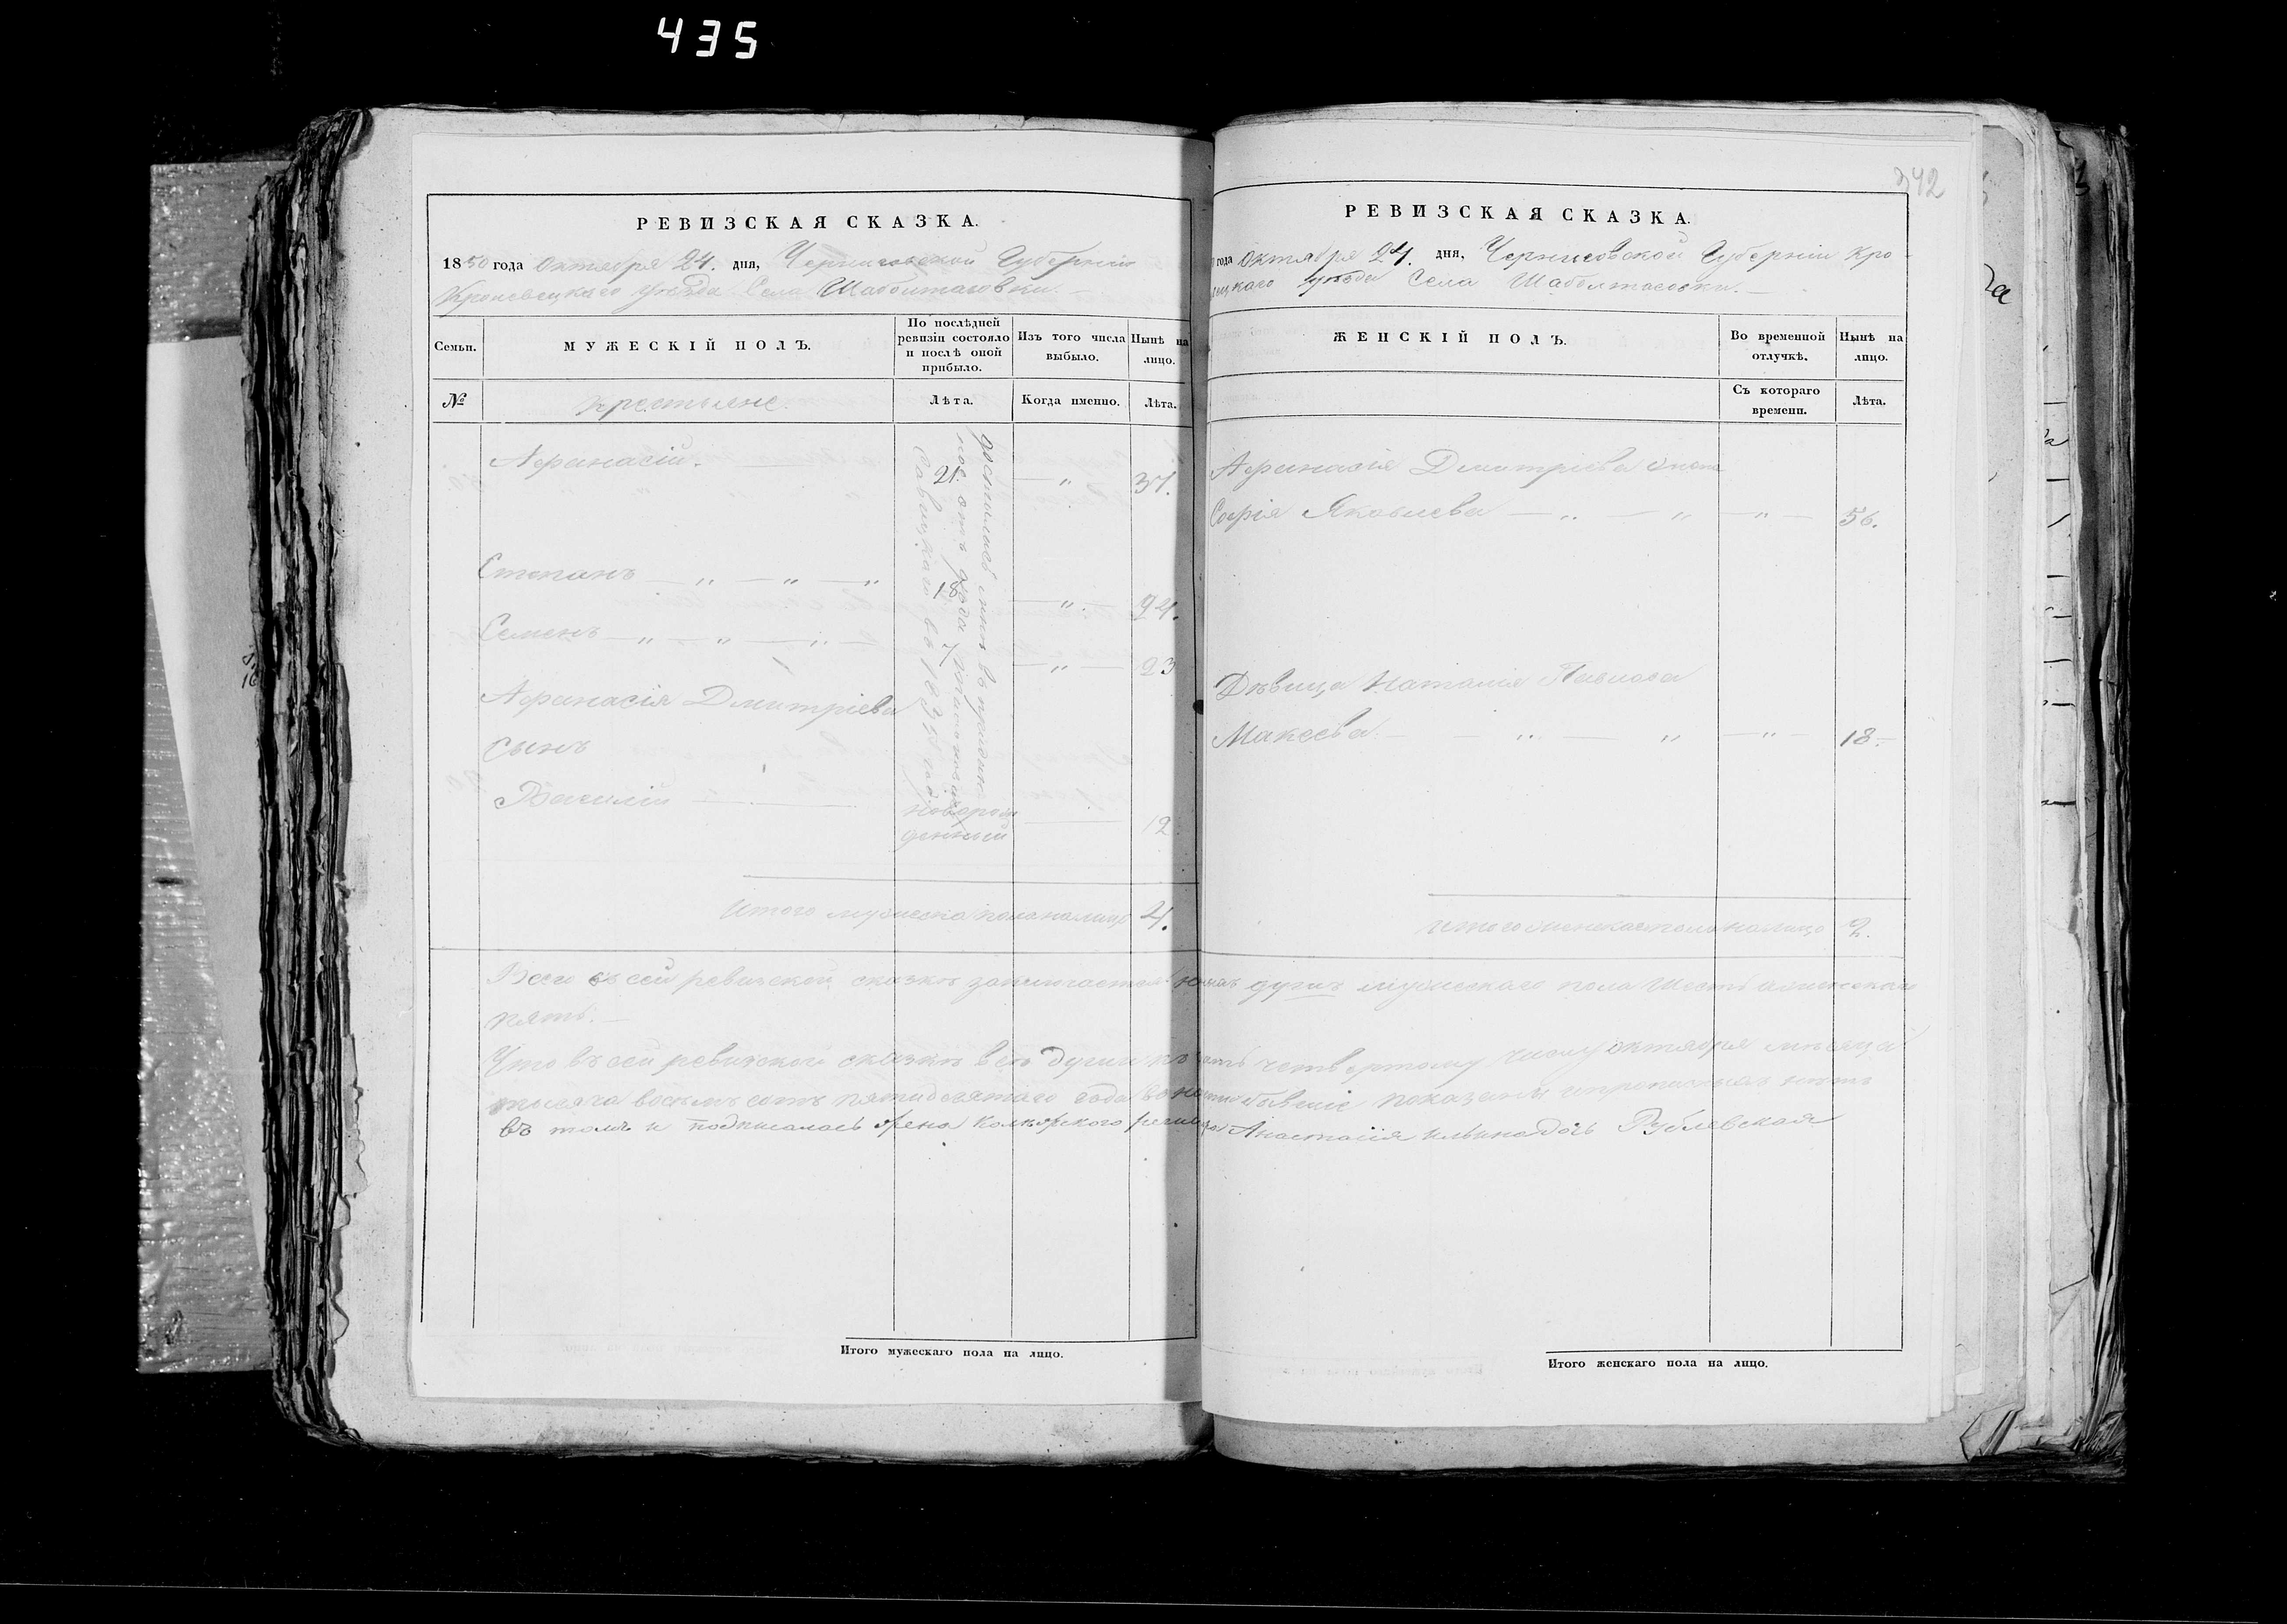 435
342
РЕВИЗСКАЯ СКАЗКА.
1850 года Октября 24. дня, Черниговской Губерніи
Кролевецкаго уѣзда Села Шаболтасовки.
Семьи.
МУЖЕСКІЙ ПОЛЪ.
По послѣдней ревизіи состояло и послѣ оной прибыло.
Изъ того числа выбыло.
Нынѣ на лицо.
№
крестьяне.
Лѣта.
Когда именно.
Лѣта.
Афанасій. 21. — " — 37.
Степанъ — " — " — " 18 — " — 24.
Семенъ — " — " — " — " — 23
достались мнѣ въ приданное
Савицкаго въ 1835 году
Афанасія Дмитріева
сынъ
Василій новорож 12
денный
Итого мужеска пола налицо 4.
РЕВИЗСКАЯ СКАЗКА.
года Октября 24. дня, Черниговской Губерніи Кро
вецкаго уѣзда Села Шаболтасовки.
ЖЕНСКІЙ ПОЛЪ.
Во временной отлучкѣ.
Нынѣ на лицо.
Съ котораго времени.
Лѣта.
Афанасія Дмитріева жена
Софія Яковлева — " — " — " — 56.
Дѣвица Наталія Павлова
Макеева — " — " — " — 18.
итого женска пола налицо 2.
Всего въ сей ревизской сказкѣ заключается душъ мужескаго пола шесть а женскаго
пять.
Что въ сей ревизской сказкѣ всѣ души къ четвертому числу октября мѣсяца
тысяча восемь сотъ пятидесятаго года показаны и прописныхъ нѣтъ
въ томъ и подписалась жена Колежского Анастасія Ильина дочь Рублевская
Итого мужескаго пола на лицо.
Итого женскаго пола на лицо.